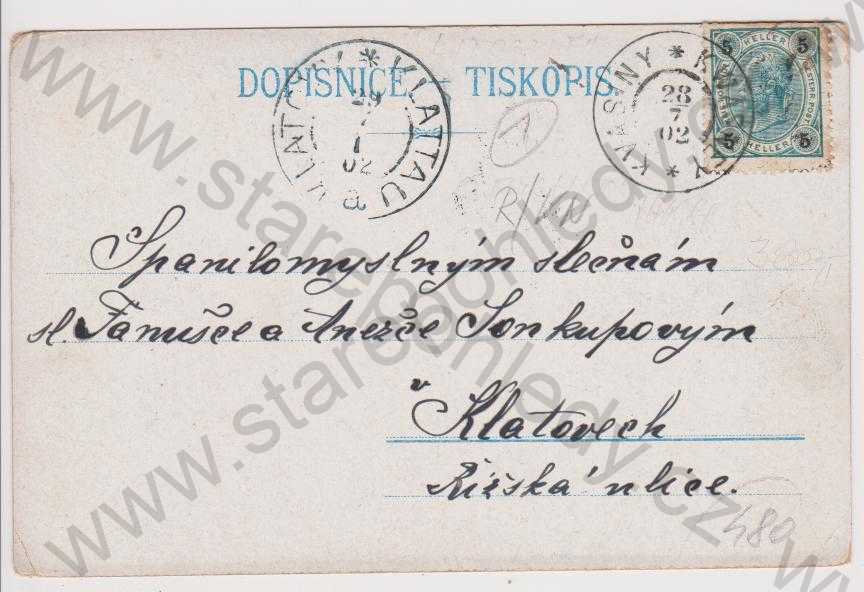 DOPISNICE – TISKOPIS.
KLATOVY * KLATTAU
29
7
02
8
KVASINY * KWASNEY *
28
7
02
5 HELLER 5
5 HELLER 5
Spanilomyslným slečnám
sl. Fanušce a Anežce Sonkupovým
v
Klatovech
Říšská ulice.
480
www.starepohledy.cz